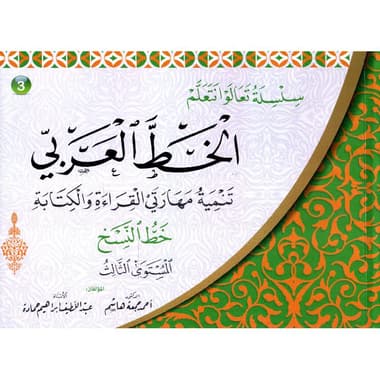 3
سلسلة تعالوا نتعلم
الخط العربي
تنمية مهارتي القراءة والكتابة
خط النسخ
المستوى الثالث
المؤلفان:
الدكتور الأستاذ
أحمد جمعة هاشم عبد اللطيف إبراهيم حمادة